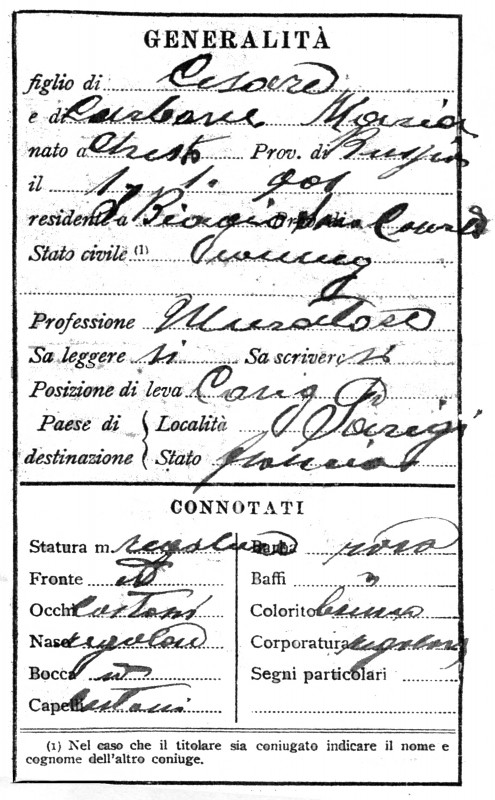 GENERALITÀ
figlio di Cesare
e di Maria
nato a Prov. di
il 1. 1. 901
residente a S. Biagio
Stato civile (1)
Professione Muratore
Sa leggere si Sa scrivere si
Posizione di leva Cong
Paese di Località Parigi
destinazione Stato Francia
CONNOTATI
Statura m. regolare Barba rasa
Fronte id Baffi "
Occhi castani Colorito bruno
Naso regolare Corporatura regolare
Bocca id Segni particolari
Capelli castani
(1) Nel caso che il titolare sia coniugato indicare il nome e
cognome dell'altro coniuge.